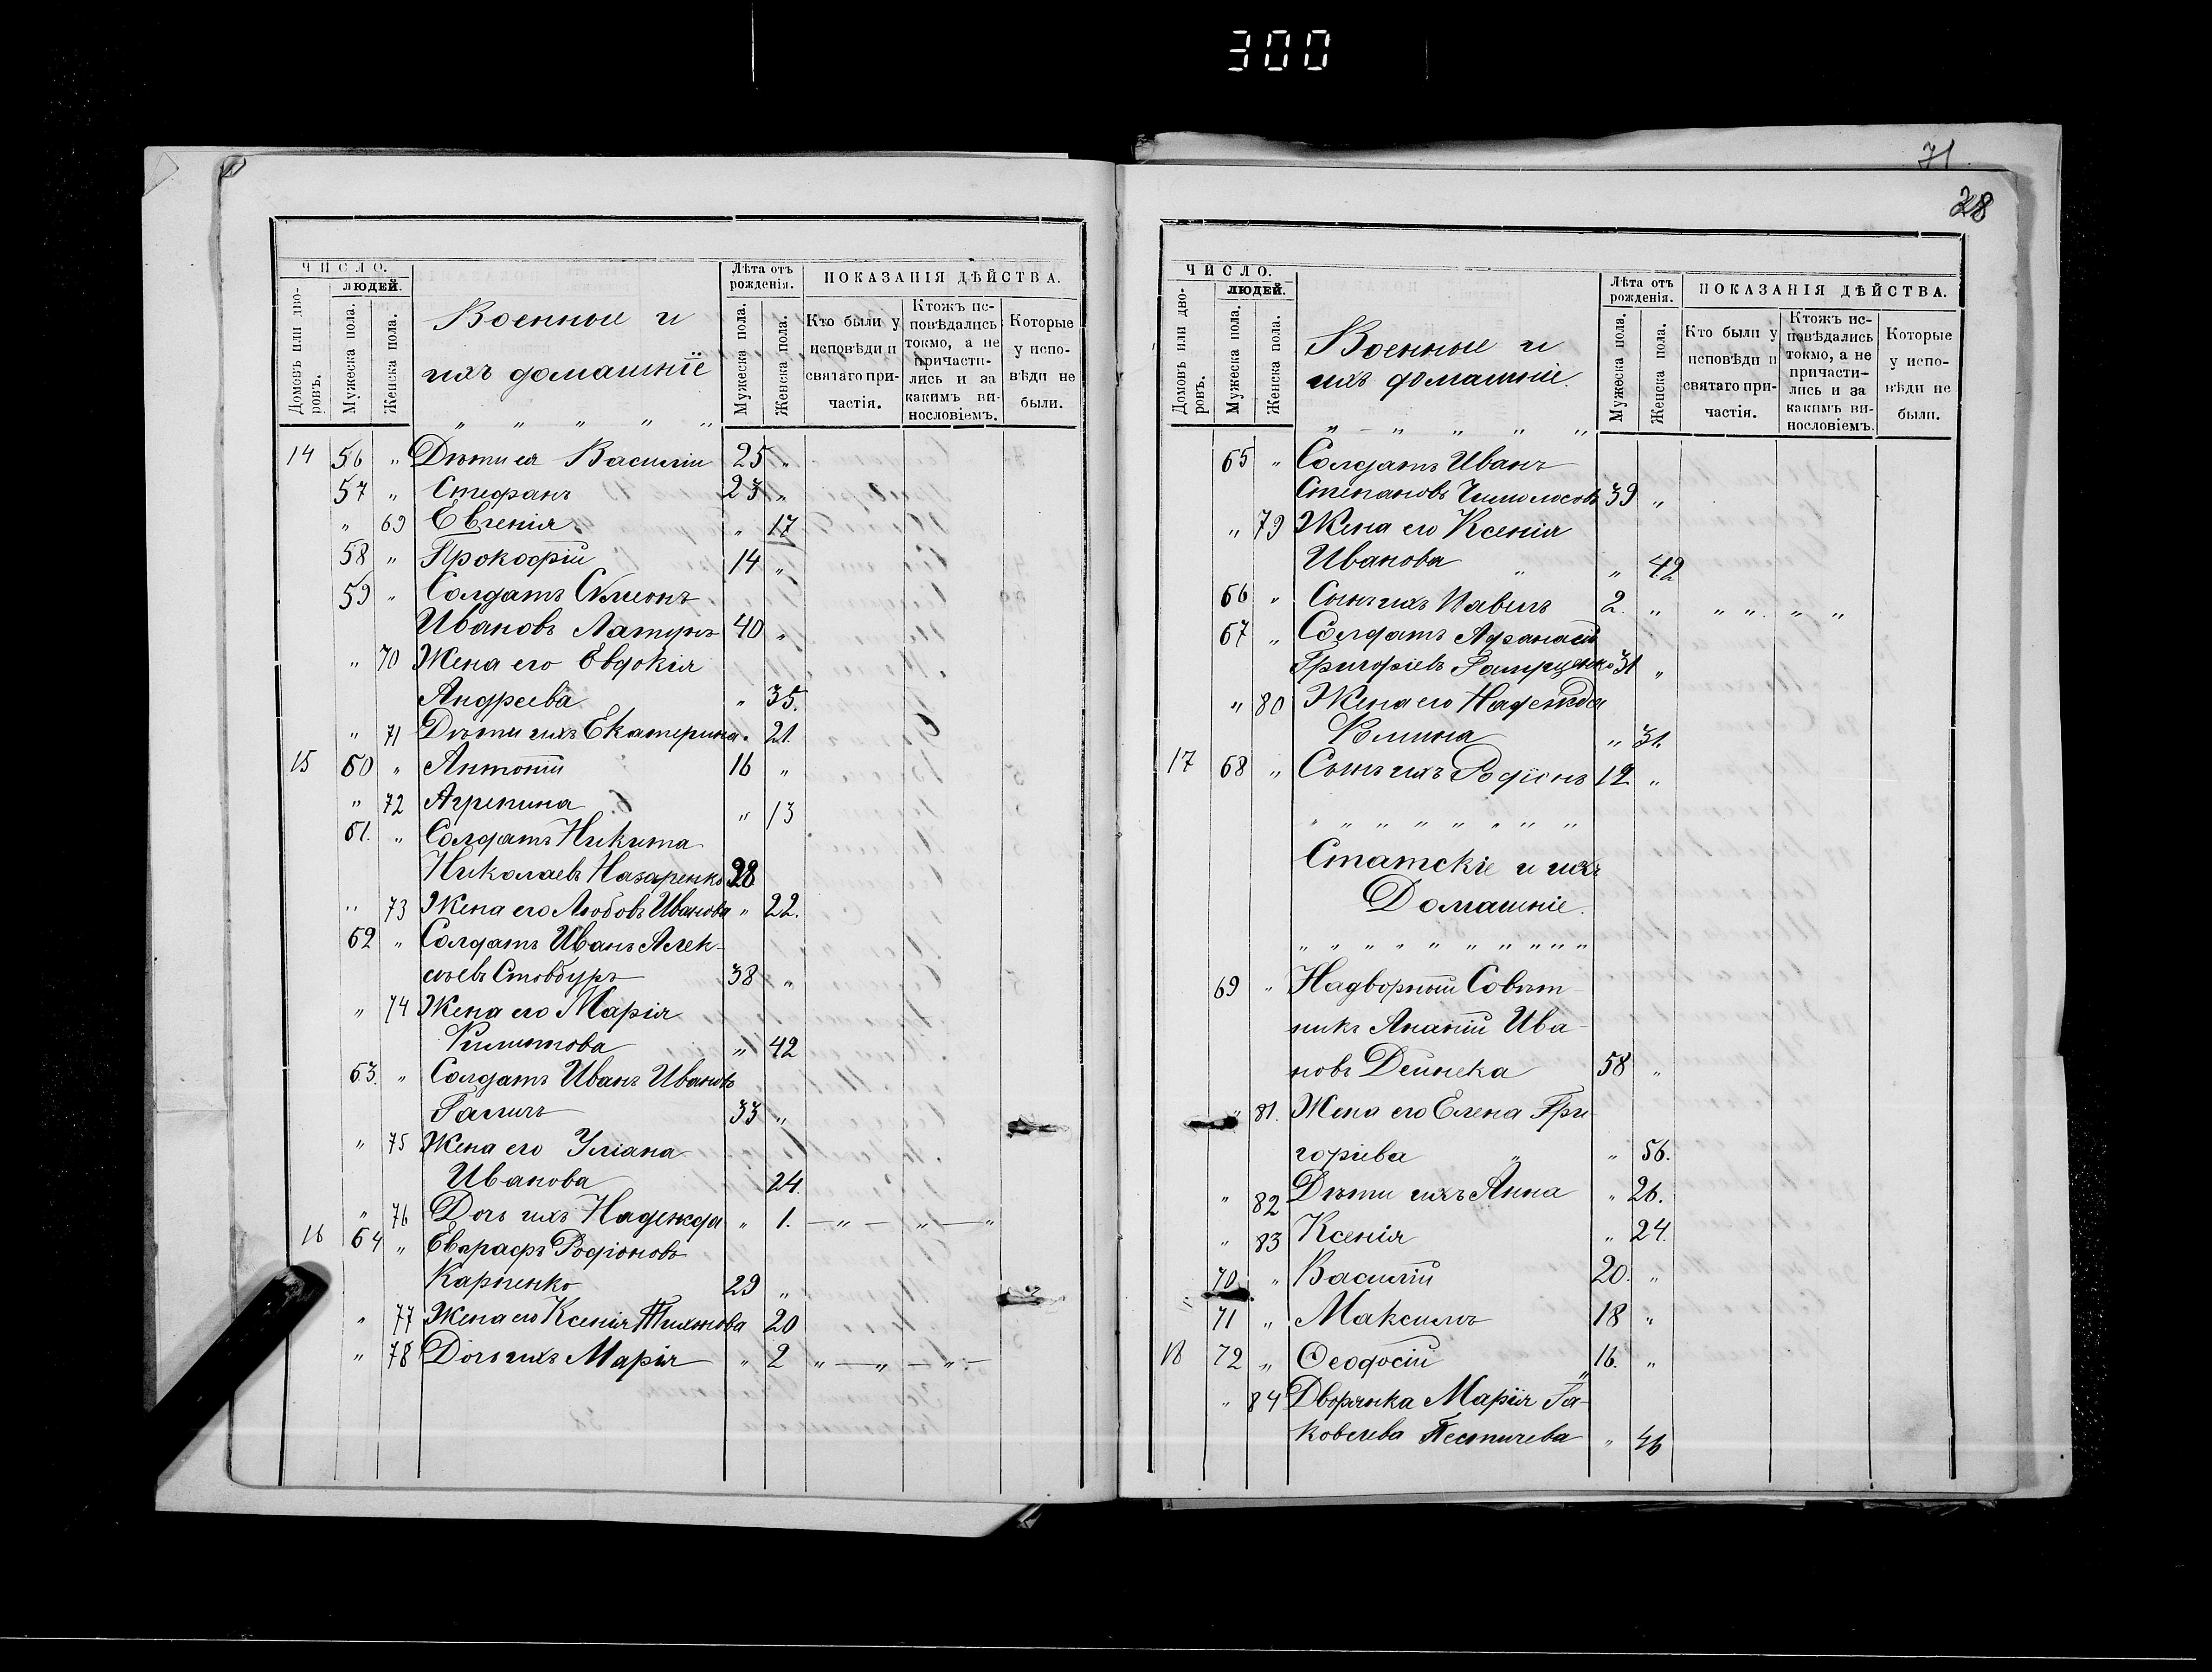 300
71
28
ЧИСЛО.
ЛЮДЕЙ.
Домовъ или дворовъ.
Мужеска пола.
Женска пола.
Военные и
ихъ домашнїе
" " " " "
Лѣта отъ рожденія.
Мужеска пола.
Женска пола.
ПОКАЗАНІЯ ДѢЙСТВА.
Кто были у исповѣди и святаго причастія.
Ктожъ исповѣдались токмо, а не причастились и за какимъ винословіемъ.
Которые у исповѣди не были.
14 56 " Дѣти ея Василій 25 "
57 " Стефанъ 23 "
" 69 Евгенія " 17
58 " Прокофій 14 "
59 " Солдатъ Сѵмеонъ
Ивановъ 40 "
" 70 Жена его Евдокія
Андреева " 35.
" 71 Дѣти ихъ Екатерина " 21.
15 60 " Антоній 16 "
" 72 Агрепина " 13
61. " Солдатъ Никита
Николаевъ Назаренко 28
" 73 Жена его Любовь Иванова " 22.
62 " Солдатъ Иванъ Алек-
сѣевъ Стовбуръ 38 "
" 74 Жена его Марія
" 42
63. " Солдатъ Иванъ Ивановъ
Галичъ 33 "
" 75 Жена его Уліана
Иванова 24.
" 76 Дочь ихъ Надежда " 1. — " — " — "
16 64 " Евграфъ Родіоновъ
Карпенко 29 "
" 77 Жена его Ксенія Тихонова " 20
" 78 Дочь ихъ Марія " 2 " — " — " —
ЧИСЛО.
ЛЮДЕЙ.
Домовъ или дворовъ.
Мужеска пола.
Женска пола.
Военные и
ихъ домашніе.
" — " " " "
Лѣта отъ рожденія.
Мужеска пола.
Женска пола.
ПОКАЗАНІЯ ДѢЙСТВА.
Кто были у исповѣди и святаго причастія.
Ктожъ исповѣдались токмо, а не причастились и за какимъ винословіемъ.
Которые у исповѣди не были.
65 " Солдатъ Иванъ
Степановъ 39 "
" 79 Жена его Ксенія
Иванова " " 42
66 " Сынъ ихъ Павелъ 2. " " " " "
67 " Солдатъ Афанасій
Григоріевъ 31 "
" 80 Жена его Надежда
" 31.
17 68 " Сынъ ихъ Родіонъ 12 "
" " " " " " " "
Статскіе и ихъ
Домашніе.
" " " " " " " " " "
69 " Надворный Совѣт-
никъ Ананій Ива-
новъ Дейнека 58 "
" 81. Жена его Елена Гри-
горіева " " 56.
" 82 Дѣти ихъ Анна " 26.
" 83 Ксенія " 24.
70 " Василій 20. "
71 " Максимъ 18 "
18 72 " Ѳеодосій 16. "
" 84 Дворянка Марія Іа-
ковлева " 46